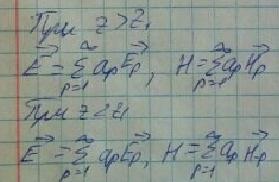 При z > z₁
E⃗ = ∑_{p=1}^{∞} a_p E⃗_p, H = ∑_{p=1}^{∞} a_p H⃗_p
При z < z₁
E⃗ = ∑_{p=1}^{∞} a_p E⃗_p, H = ∑_{p=1}^{∞} a_p H⃗_p